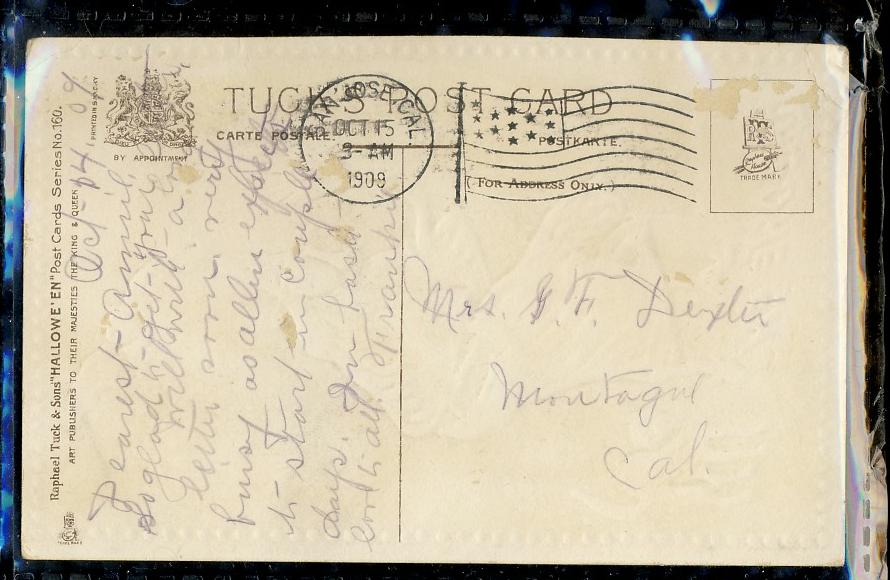 TUCK'S POST CARD
CARTE POSTALE.
POSTKARTE.
(FOR ADDRESS ONLY.)
BY APPOINTMENT
PRINTED IN SAXONY
SAN JOSE, CAL.
OCT 15
3-AM
1909
TRADE MARK
Raphael Tuck & Sons' "HALLOWE'EN" Post Cards Series No. 160.
ART PUBLISHERS TO THEIR MAJESTIES THE KING & QUEEN
Oct-14 '09
Dearest
So glad to get your
Will write a
letter soon. very
busy as allen expects
to start in couple
days. In haste
love to all. Frankie
Mrs. G. F. Dexter
Montague
Cal.